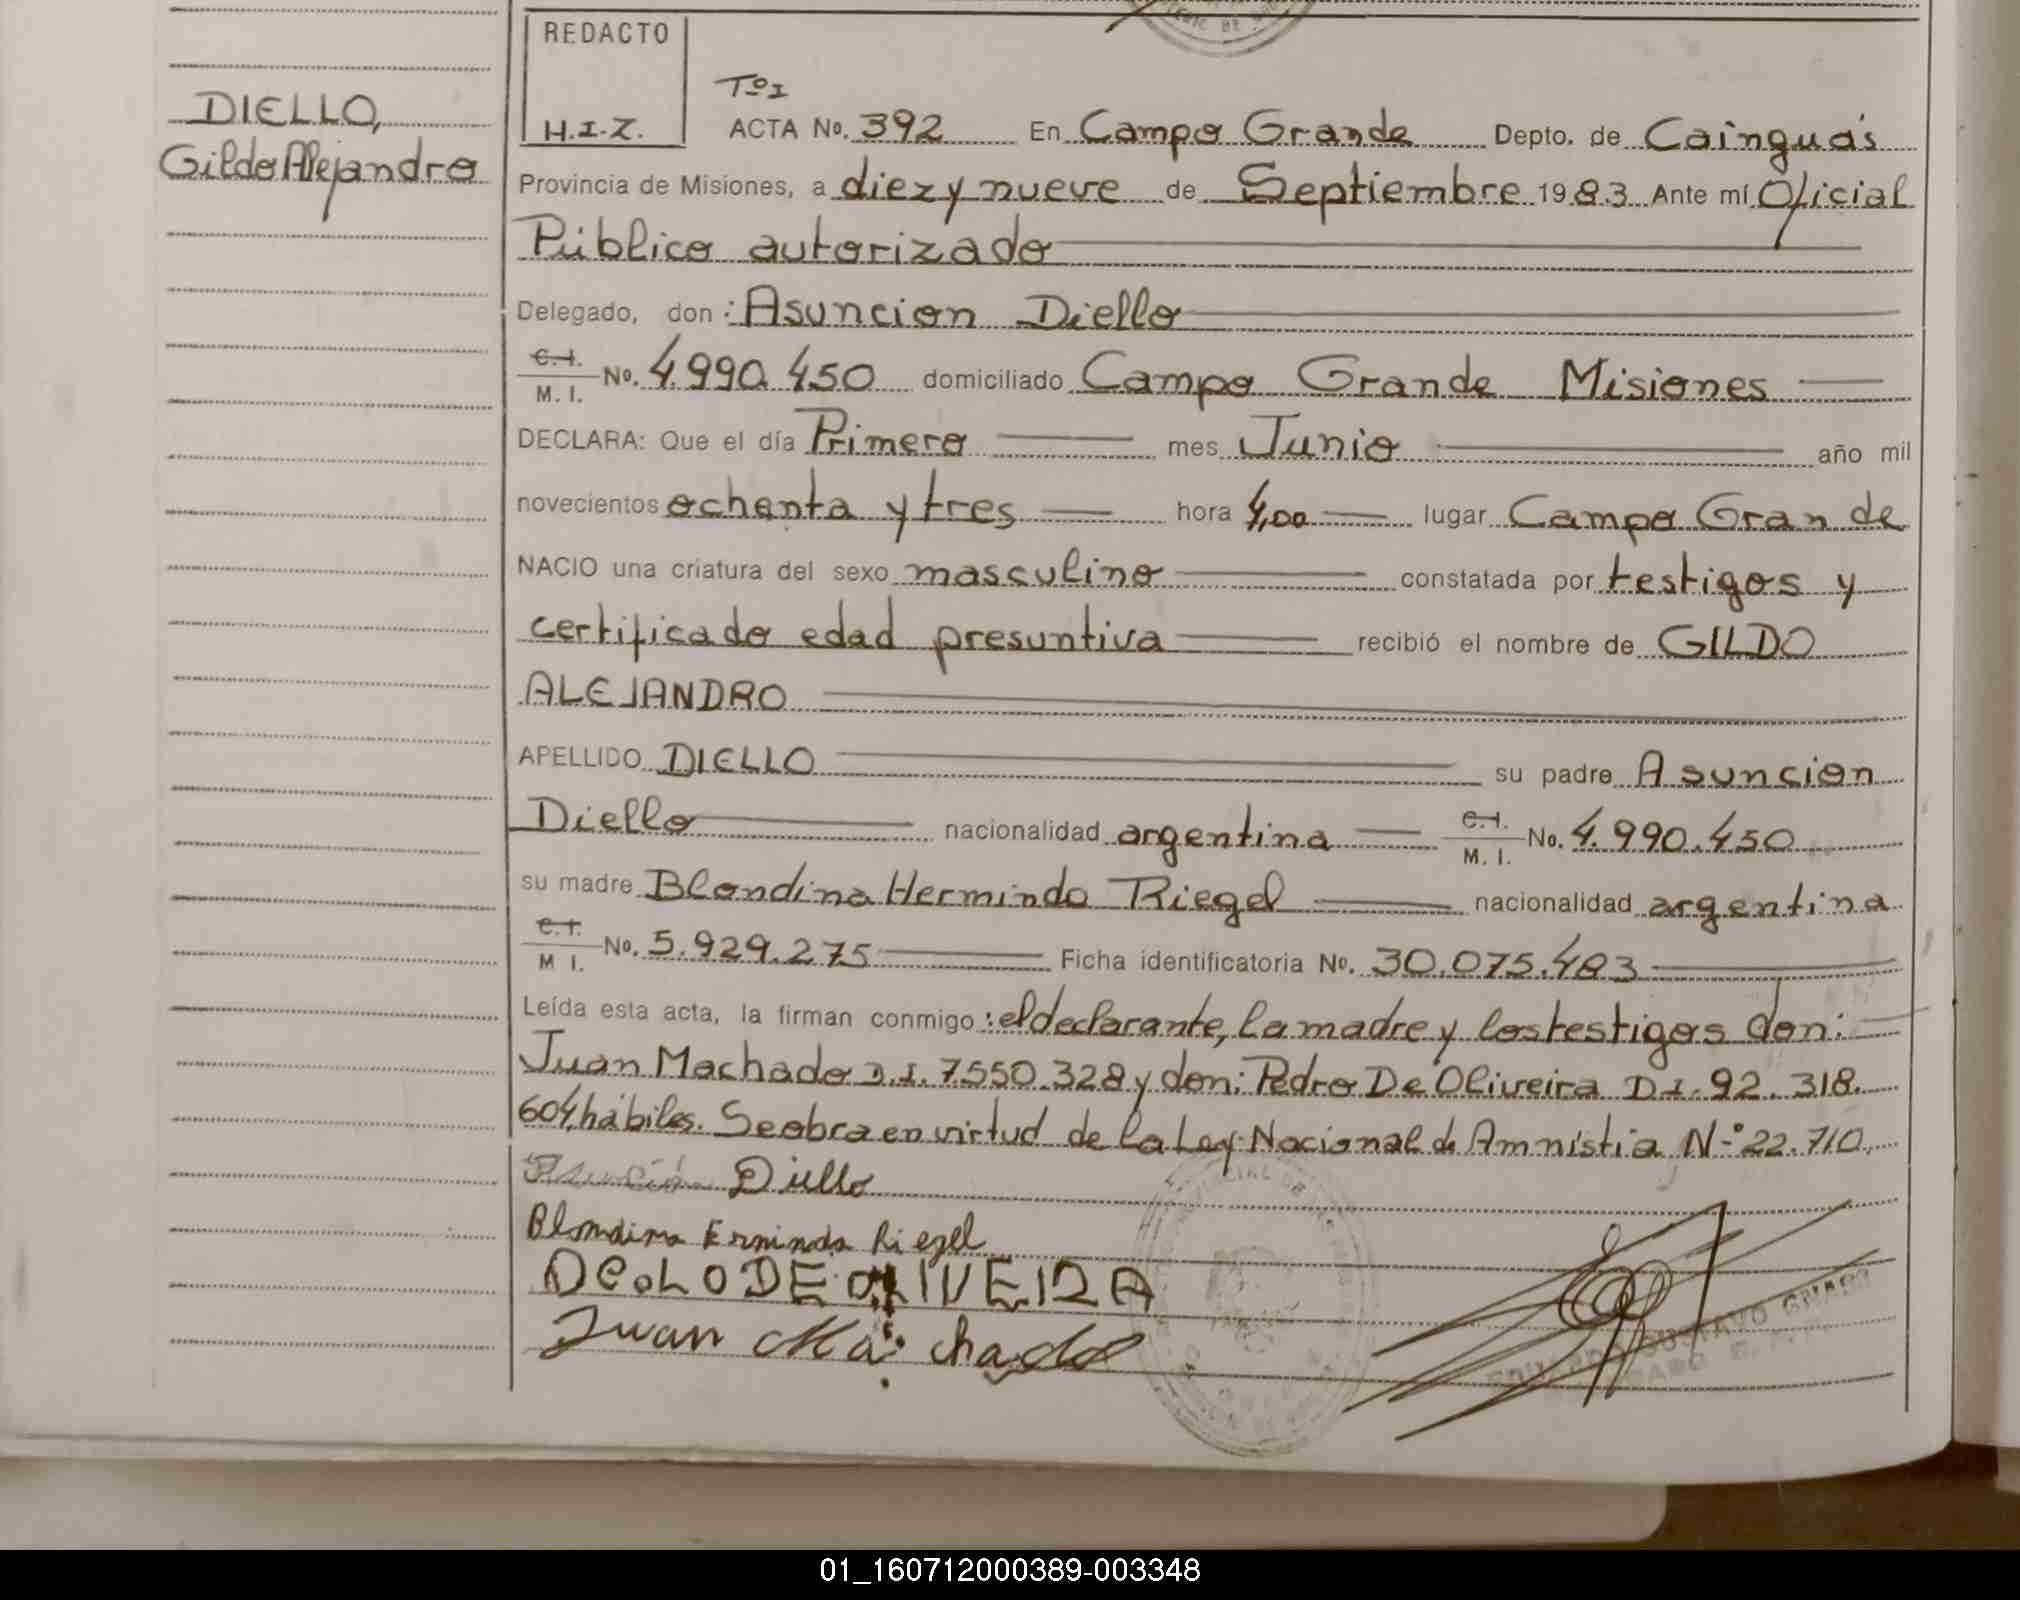 REDACTO
H.I.Z.
DIELLO,
Gildo Alejandro
Tº I
ACTA No. 392 En Campo Grande Depto. de Cainguás
Provincia de Misiones, a diez y nueve de Septiembre 1983 Ante mí Oficial
Público autorizado
Delegado, don: Asuncion Diello
C.I. M.I. No. 4.990.450 domiciliado Campo Grande Misiones
DECLARA: Que el día Primero mes Junio año mil
novecientos ochenta y tres hora 4,00 lugar Campo Grande
NACIO una criatura del sexo masculino constatada por testigos y
certificado edad presuntiva recibió el nombre de GILDO
ALEJANDRO
APELLIDO DIELLO su padre Asuncion
Diello nacionalidad argentina C.I. M.I. No. 4.990.450
su madre Blondina Herminda Riegel nacionalidad argentina
C.I. M I. No. 5.929.275 Ficha identificatoria No. 30.075.483
Leída esta acta, la firman conmigo: el declarante, la madre y los testigos don:
Juan Machado D.I. 7.550.328 y don: Pedro De Oliveira D.I. 92.318.
604, hábiles. Se obra en virtud de la Ley Nacional de Amnistia Nº 22.710.
Asunción Diello
Blondina Erminda Riegel
DE OLIVEIRA
Juan Machado
EDUARDO GUSTAVO
01_160712000389-003348